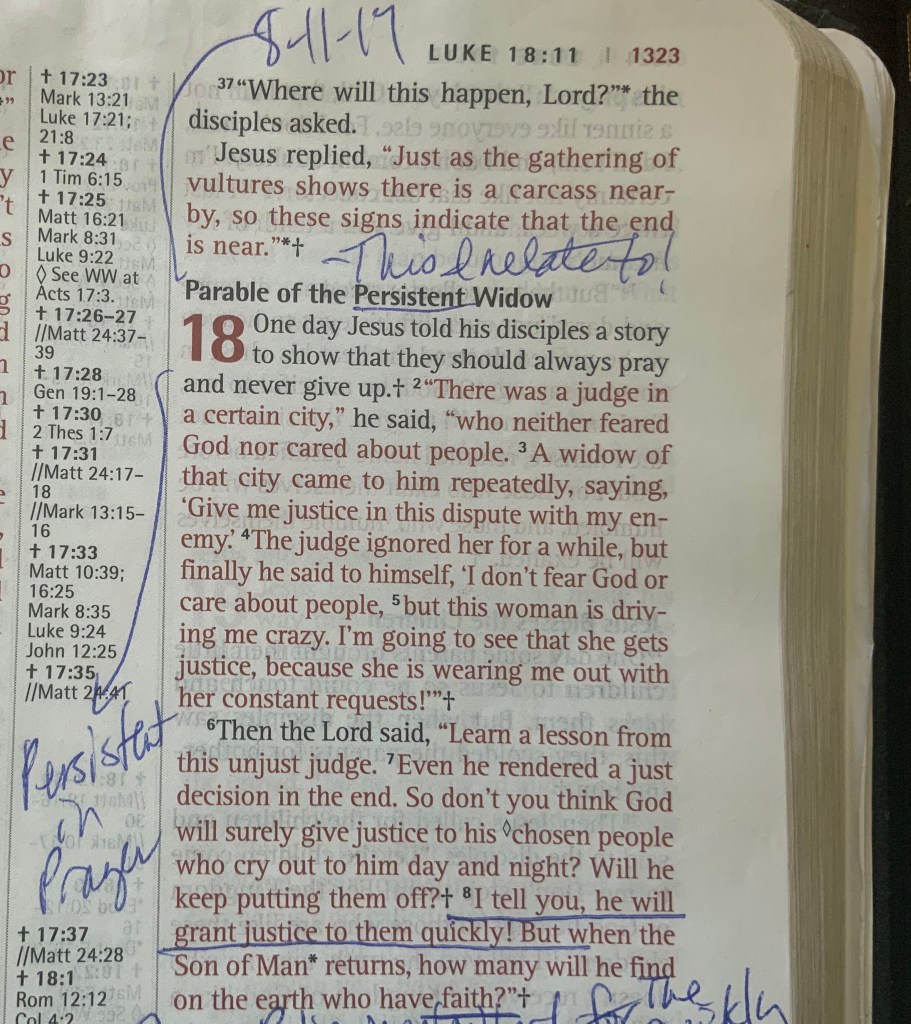 8-11-17
LUKE 18:11 | 1323
† 17:23
Mark 13:21
Luke 17:21;
21:8
† 17:24
1 Tim 6:15
† 17:25
Matt 16:21
Mark 8:31
Luke 9:22
◊ See WW at
Acts 17:3.
† 17:26–27
//Matt 24:37–
39
† 17:28
Gen 19:1–28
† 17:30
2 Thes 1:7
† 17:31
//Matt 24:17–
18
//Mark 13:15–
16
† 17:33
Matt 10:39;
16:25
Mark 8:35
Luke 9:24
John 12:25
† 17:35
//Matt 24:41
Persistent
in
Prayer
† 17:37
//Matt 24:28
† 18:1
Rom 12:12
Col 4:2
37 “Where will this happen, Lord?”* the
disciples asked.
Jesus replied, “Just as the gathering of
vultures shows there is a carcass near-
by, so these signs indicate that the end
is near.”*†
-This I relate to!
Parable of the Persistent Widow
18 One day Jesus told his disciples a story
to show that they should always pray
and never give up.† 2 “There was a judge in
a certain city,” he said, “who neither feared
God nor cared about people. 3 A widow of
that city came to him repeatedly, saying,
‘Give me justice in this dispute with my en-
emy.’ 4 The judge ignored her for a while, but
finally he said to himself, ‘I don’t fear God or
care about people, 5 but this woman is driv-
ing me crazy. I’m going to see that she gets
justice, because she is wearing me out with
her constant requests!’”†
6 Then the Lord said, “Learn a lesson from
this unjust judge. 7 Even he rendered a just
decision in the end. So don’t you think God
will surely give justice to his ◊chosen people
who cry out to him day and night? Will he
keep putting them off?† 8 I tell you, he will
grant justice to them quickly! But when the
Son of Man* returns, how many will he find
on the earth who have faith?”†
The